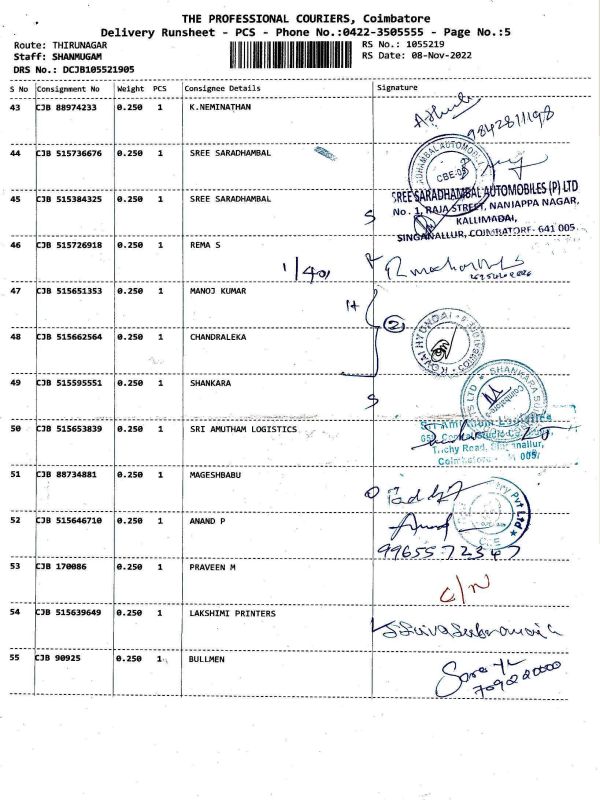 THE PROFESSIONAL COURIERS, Coimbatore
Delivery Runsheet - PCS - Phone No.:0422-3505555 - Page No.:5
Route: THIRUNAGAR RS No.: 1055219
Staff: SHANMUGAM RS Date: 08-Nov-2022
DRS No.: DCJB105521905
S No Consignment No Weight PCS Consignee Details Signature
43 CJB 88974233 0.250 1 K.NEMINATHAN
9842811198
44 CJB 515736676 0.250 1 SREE SARADHAMBAL
CBE-05
45 CJB 515384325 0.250 1 SREE SARADHAMBAL
SREE SARADHAMBAL AUTOMOBILES (P) LTD
No. 1, RAJA STREET, NANJAPPA NAGAR,
KALLIMADAI,
SINGANALLUR, COIMBATORE- 641 005.
46 CJB 515726918 0.250 1 REMA S
1/401
47 CJB 515651353 0.250 1 MANOJ KUMAR
2
KOVAI HYUNDAI
48 CJB 515662564 0.250 1 CHANDRALEKA
49 CJB 515595551 0.250 1 SHANKARA
50 CJB 515653839 0.250 1 SRI AMUTHAM LOGISTICS
Sri Amutham Logistics
Trichy Road,
51 CJB 88734881 0.250 1 MAGESHBABU
Pvt Ltd
52 CJB 515646710 0.250 1 ANAND P
Anand
9965572347
53 CJB 170086 0.250 1 PRAVEEN M
C/N
54 CJB 515639649 0.250 1 LAKSHIMI PRINTERS
55 CJB 90925 0.250 1 BULLMEN